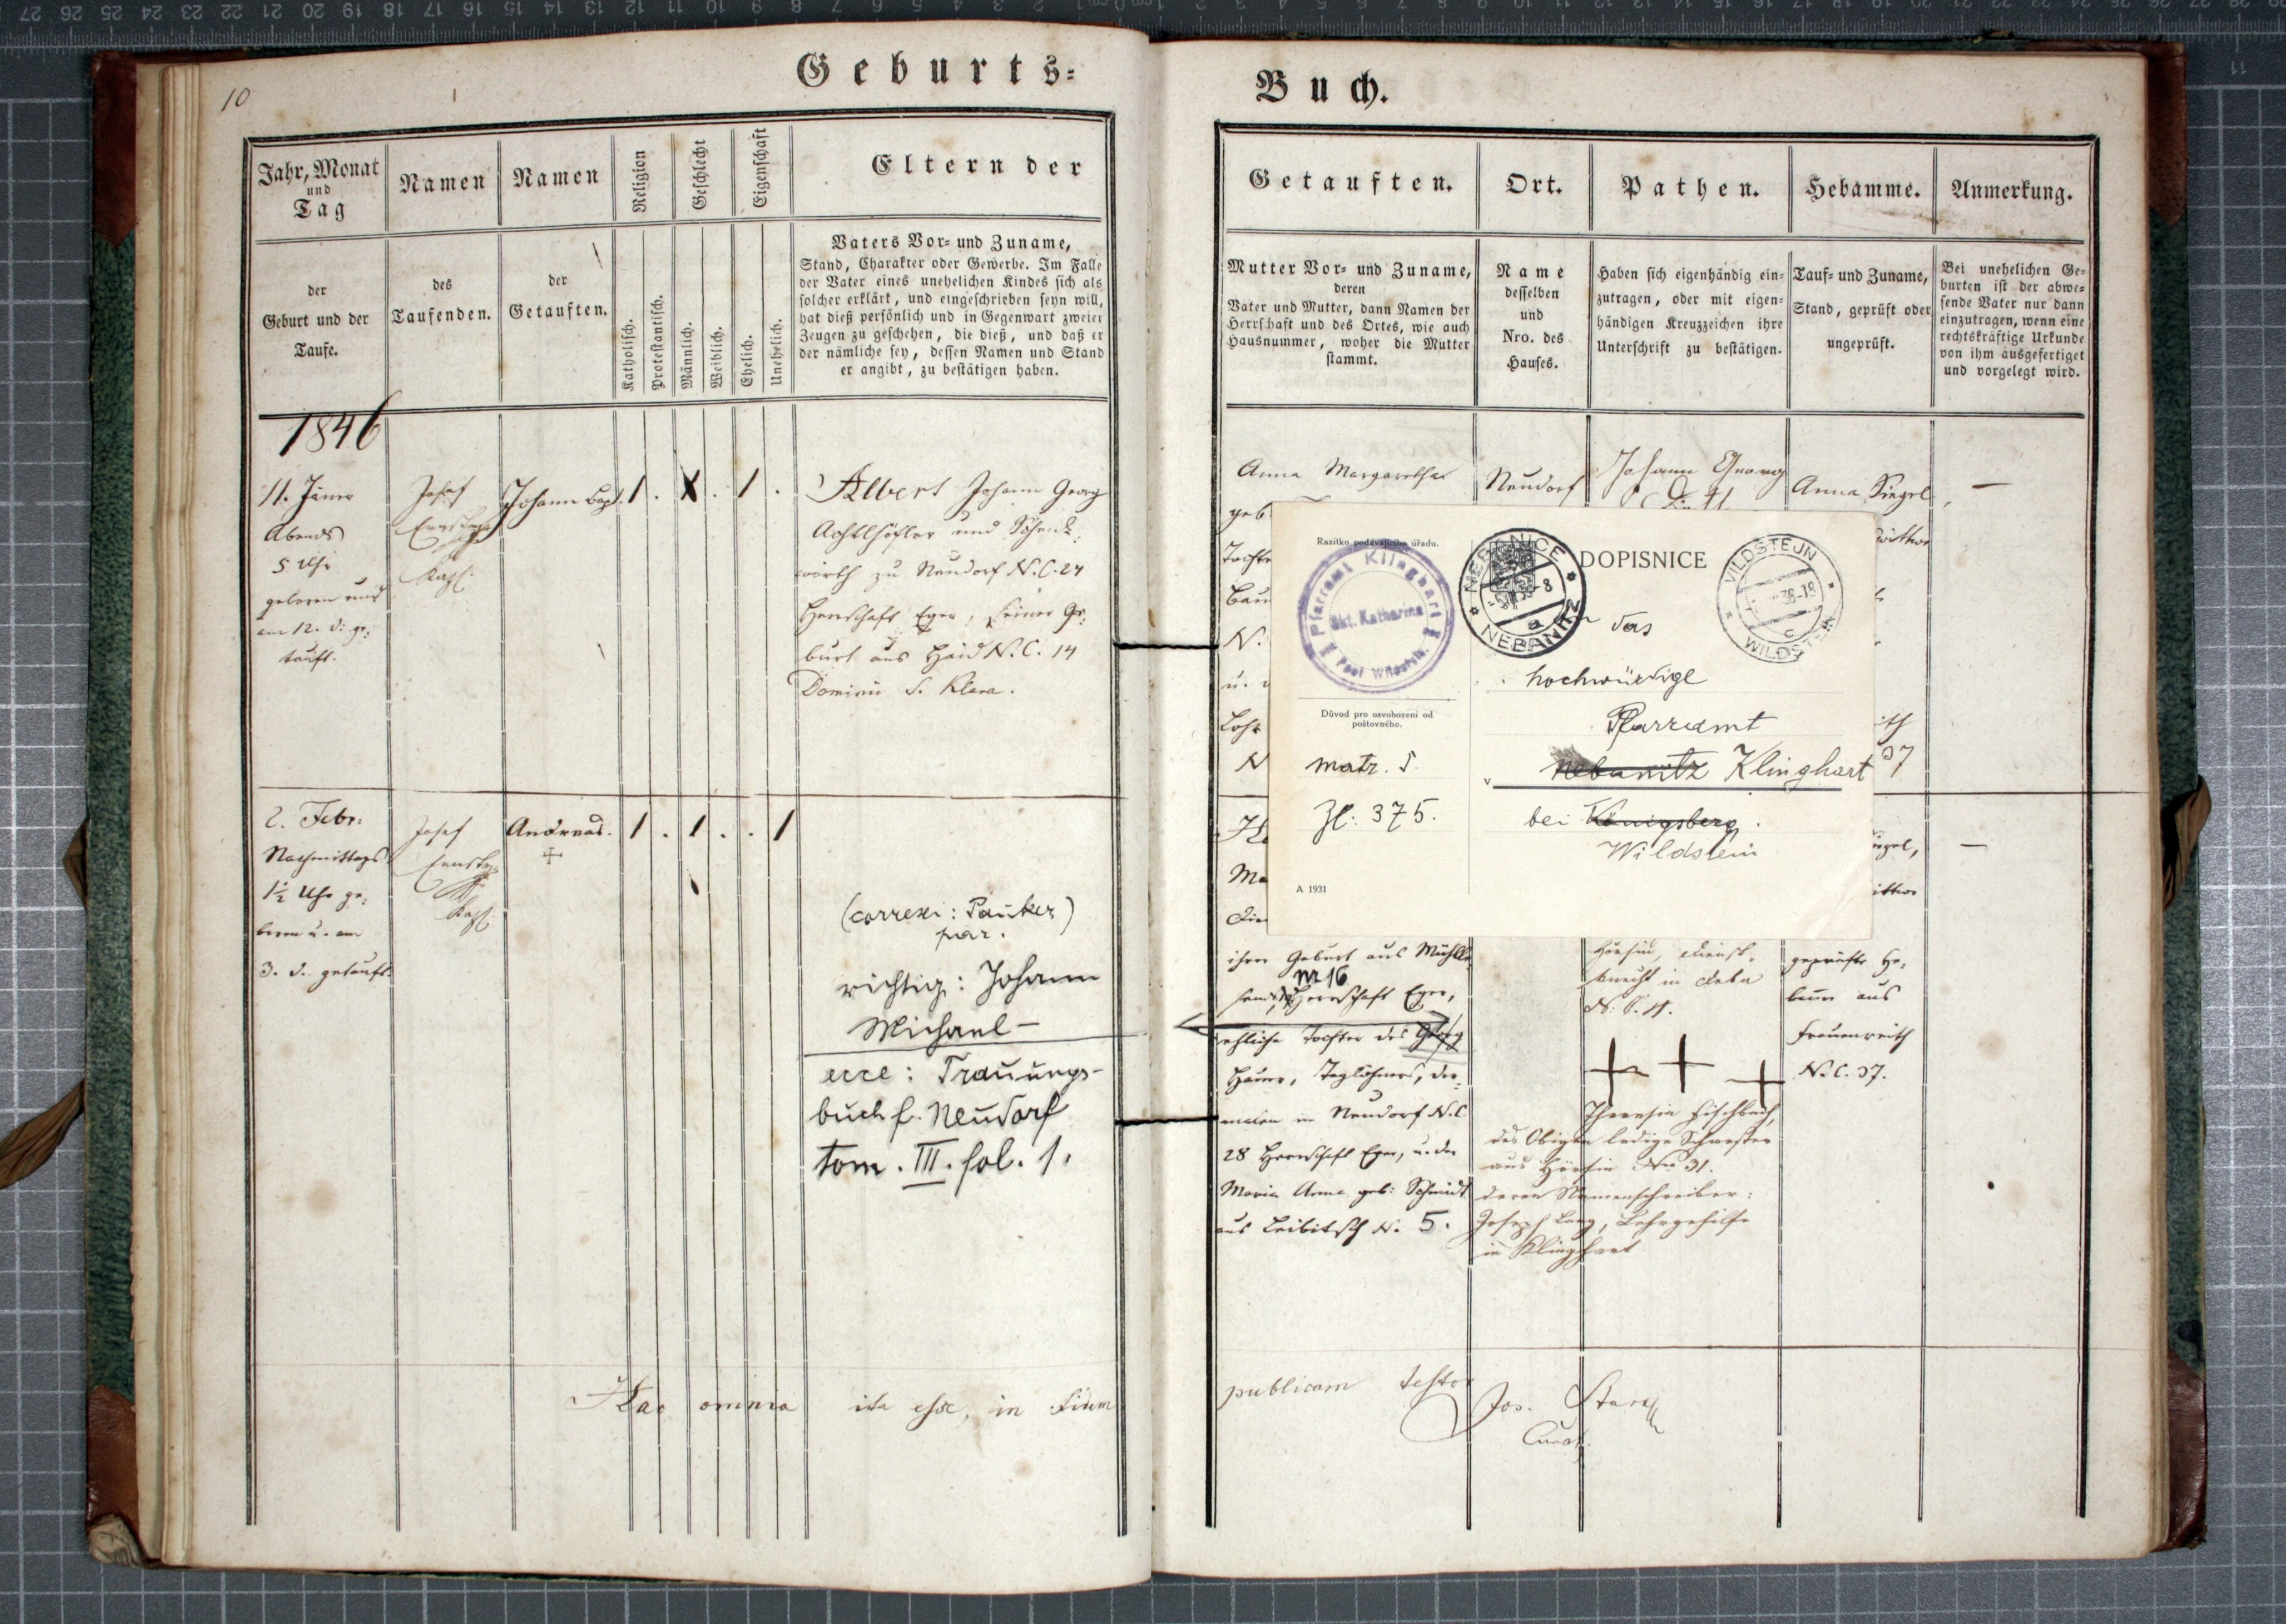 10
Geburts=
Jahr, Monat
und
Tag
der
Geburt und der
Taufe.
Namen
des
Taufenden.
Namen
der
Getauften.
Religion
Katholisch.
Protestantisch.
Geschlecht
Männlich.
Weiblich.
Eigenschaft
Ehelich.
Unehelich.
Eltern der
Vaters Vor- und Zuname,
Stand, Charakter oder Gewerbe. Im Falle
der Vater eines unehelichen Kindes sich als
solcher erklärt, und eingeschrieben seyn will,
hat dieß persönlich und in Gegenwart zweier
Zeugen zu geschehen, die dieß, und daß er
der nämliche sey, dessen Namen und Stand
er angibt, zu bestätigen haben.
1846
11. Jäner
Abends
5 Uhr
geboren und
am 12. d. ge=
tauft.
Josef
Kapl.
Johann Bapt.
1 . X . 1 .
Albert Johann Georg
Achtlhöfler und Schenk=
wirth zu Neudorf N.C. 24
Herrschaft Eger, seiner Ge=
burt aus Haid N.C. 14
Dominii S. Klara.
2. Febr:
Nachmittags
1½ Uhr ge=
boren u. am
3. d. getauft.
Josef
Kapl.
Andreas.
1 . 1 . . 1
(correxi: Pauker)
par.
richtig: Johann
Michael —
ecce: Trauungs-
buch f. Neudorf
tom. III. fol. 1.
Haec omnia ita esse, in fidem
Buch.
Getauften.
Mutter Vor- und Zuname,
deren
Vater und Mutter, dann Namen der
Herrschaft und des Ortes, wie auch
Hausnummer, woher die Mutter
stammt.
Ort.
Name
desselben
und
Nro. des
Hauses.
Pathen.
Haben sich eigenhändig ein=
zutragen, oder mit eigen=
händigen Kreuzzeichen ihre
Unterschrift zu bestätigen.
Hebamme.
Tauf- und Zuname,
Stand, geprüft oder
ungeprüft.
Anmerkung.
Bei unehelichen Ge=
burten ist der abwe=
sende Vater nur dann
einzutragen, wenn eine
rechtskräftige Urkunde
von ihm ausgefertiget
und vorgelegt wird.
Anna Margaretha
geb.
Neudorf
Johann Georg
Anna Siegel
—
Razítko podávajícího úřadu.
Pfarramt Klinghart
Skt. Katharina
Post Wildstein.
NEBANICE
NEBANITZ
a
DOPISNICE
VILDŠTEJN
38-18
c
WILDSTEIN
das
hochwürdige
Pfarramt
v
Nebanitz Klinghart
bei Königsberg
Wildstein
Důvod pro osvobození od
poštovného.
matr. S.
Zl: 375.
A 1931
37
ihrer Geburt aus Mühl=
nr 16
Herrschaft Eger,
ehliche Tochter des Georg
Taglöhners, der=
malen in Neudorf N.C.
28 Herrschaft Eger, u. der
Maria Anna geb: Schmidt
aus Leibitsch N. 5.
Hörsin, Dienst=
knecht in
N. C. 11.
+ + +
Theresia Fischbach,
des Obigen ledige Schwester
aus Hörsin Nr. 31.
deren Namenschreiber:
Joseph Lang, Lehrgehilfe
in Klinghart
geprüfte He=
bamme aus
Frauenreith
N.C. 37.
—
publicam testor
Jos. Stark
Curat.